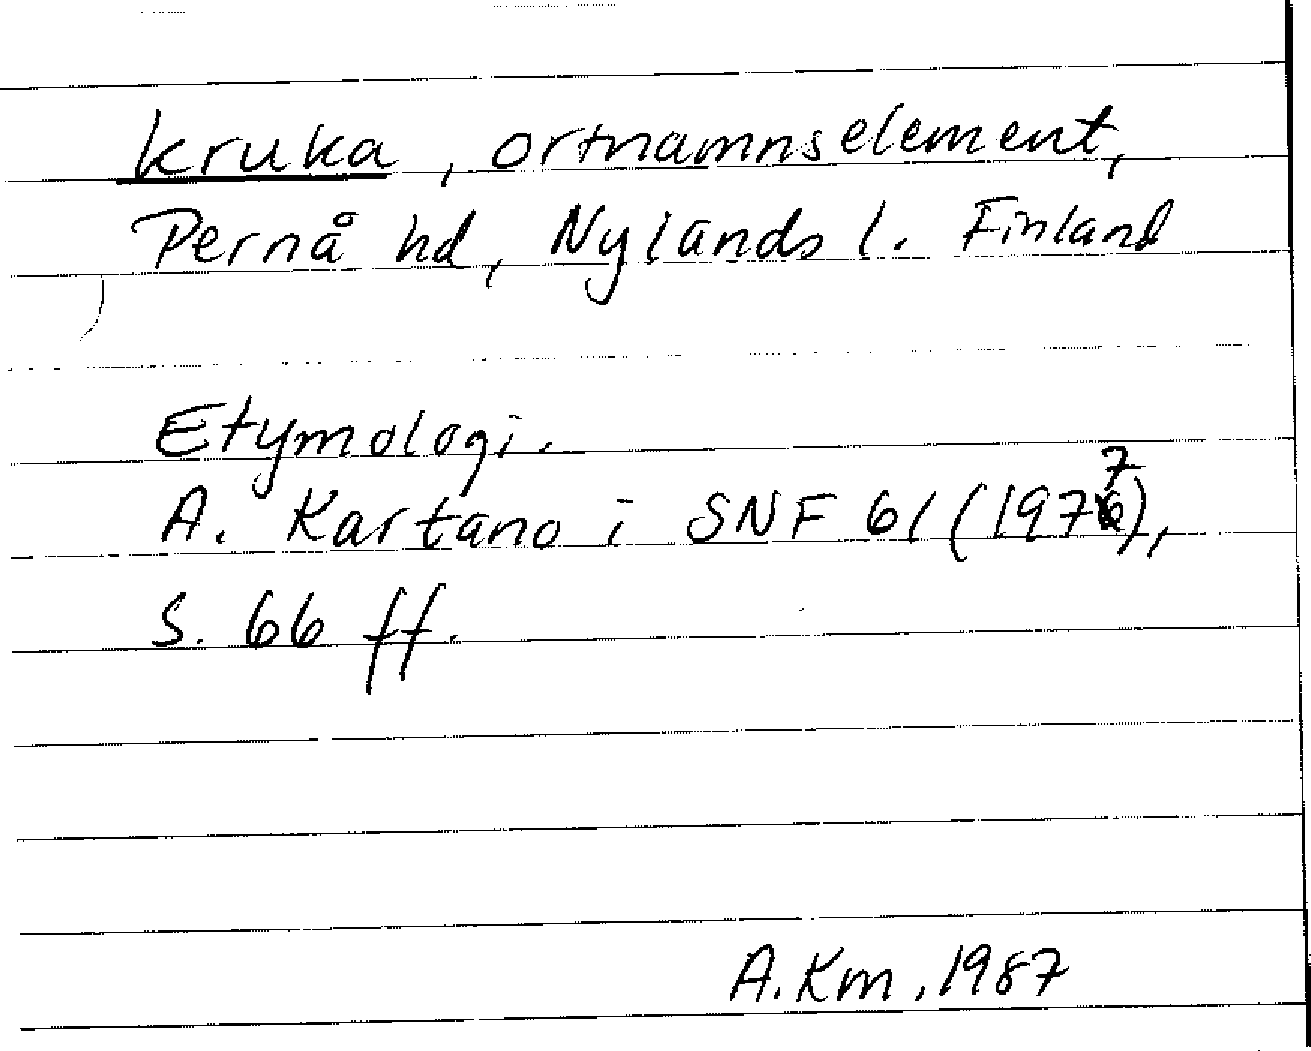 kruka, ortnamnselement,
Pernå hd, Nylands l. Finland
Etymologi.
A. Kartano i SNF 61 (1977),
S. 66 ff.
A. Km, 1987